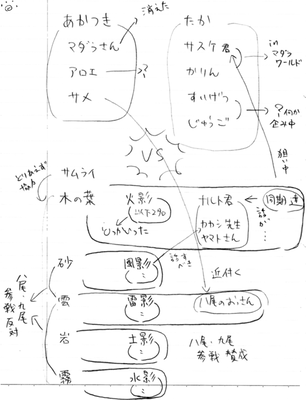 あかつき
消えた
マダラさん
アロエ
?
サメ
たか
サスケ君
inマダラワールド
かりん
すいげつ
じゅうご
?何か企み中
VS
狙い中
サムライ
とりあえず協力
木の葉
火影
ナルト君
同期達
カカシ先生
ヤマトさん
話が…
どっかいった
砂
風影
話すべき
近付く
八尾・九尾
参戦反対
雲
雷影
八尾のおっさん
岩
土影
八尾、九尾
参戦 賛成
霧
水影